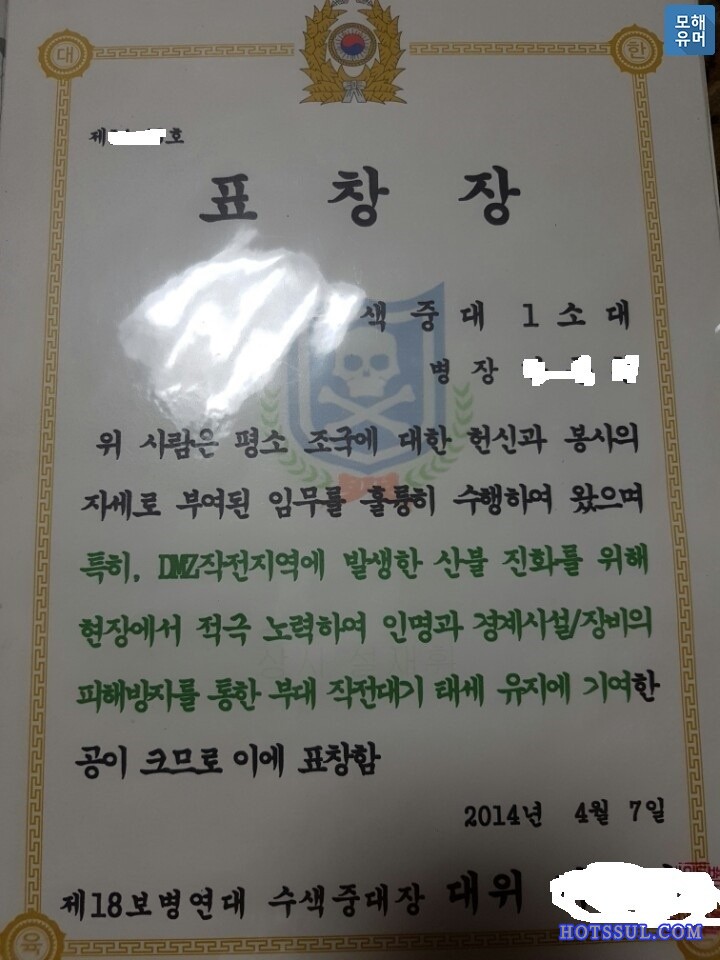 모해
유머
대 한
제 호
표 창 장
색 중 대 1 소 대
병 장
위 사람은 평소 조국에 대한 헌신과 봉사의
자세로 부여된 임무를 훌륭히 수행하여 왔으며
특히, DMZ작전지역에 발생한 산불 진화를 위해
현장에서 적극 노력하여 인명과 경계시설/장비의
피해방지를 통한 부대 작전대기 태세 유지에 기여한
공이 크므로 이에 표창함
2014년 4월 7일
제18보병연대 수색중대장 대위
육
HOTSSUL.COM